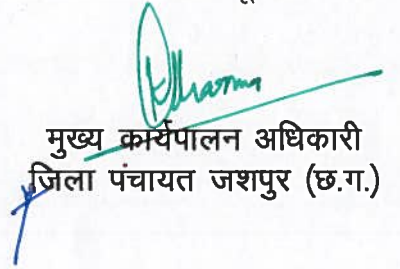 मुख्य कार्यपालन अधिकारी
जिला पंचायत जशपुर (छ.ग.)